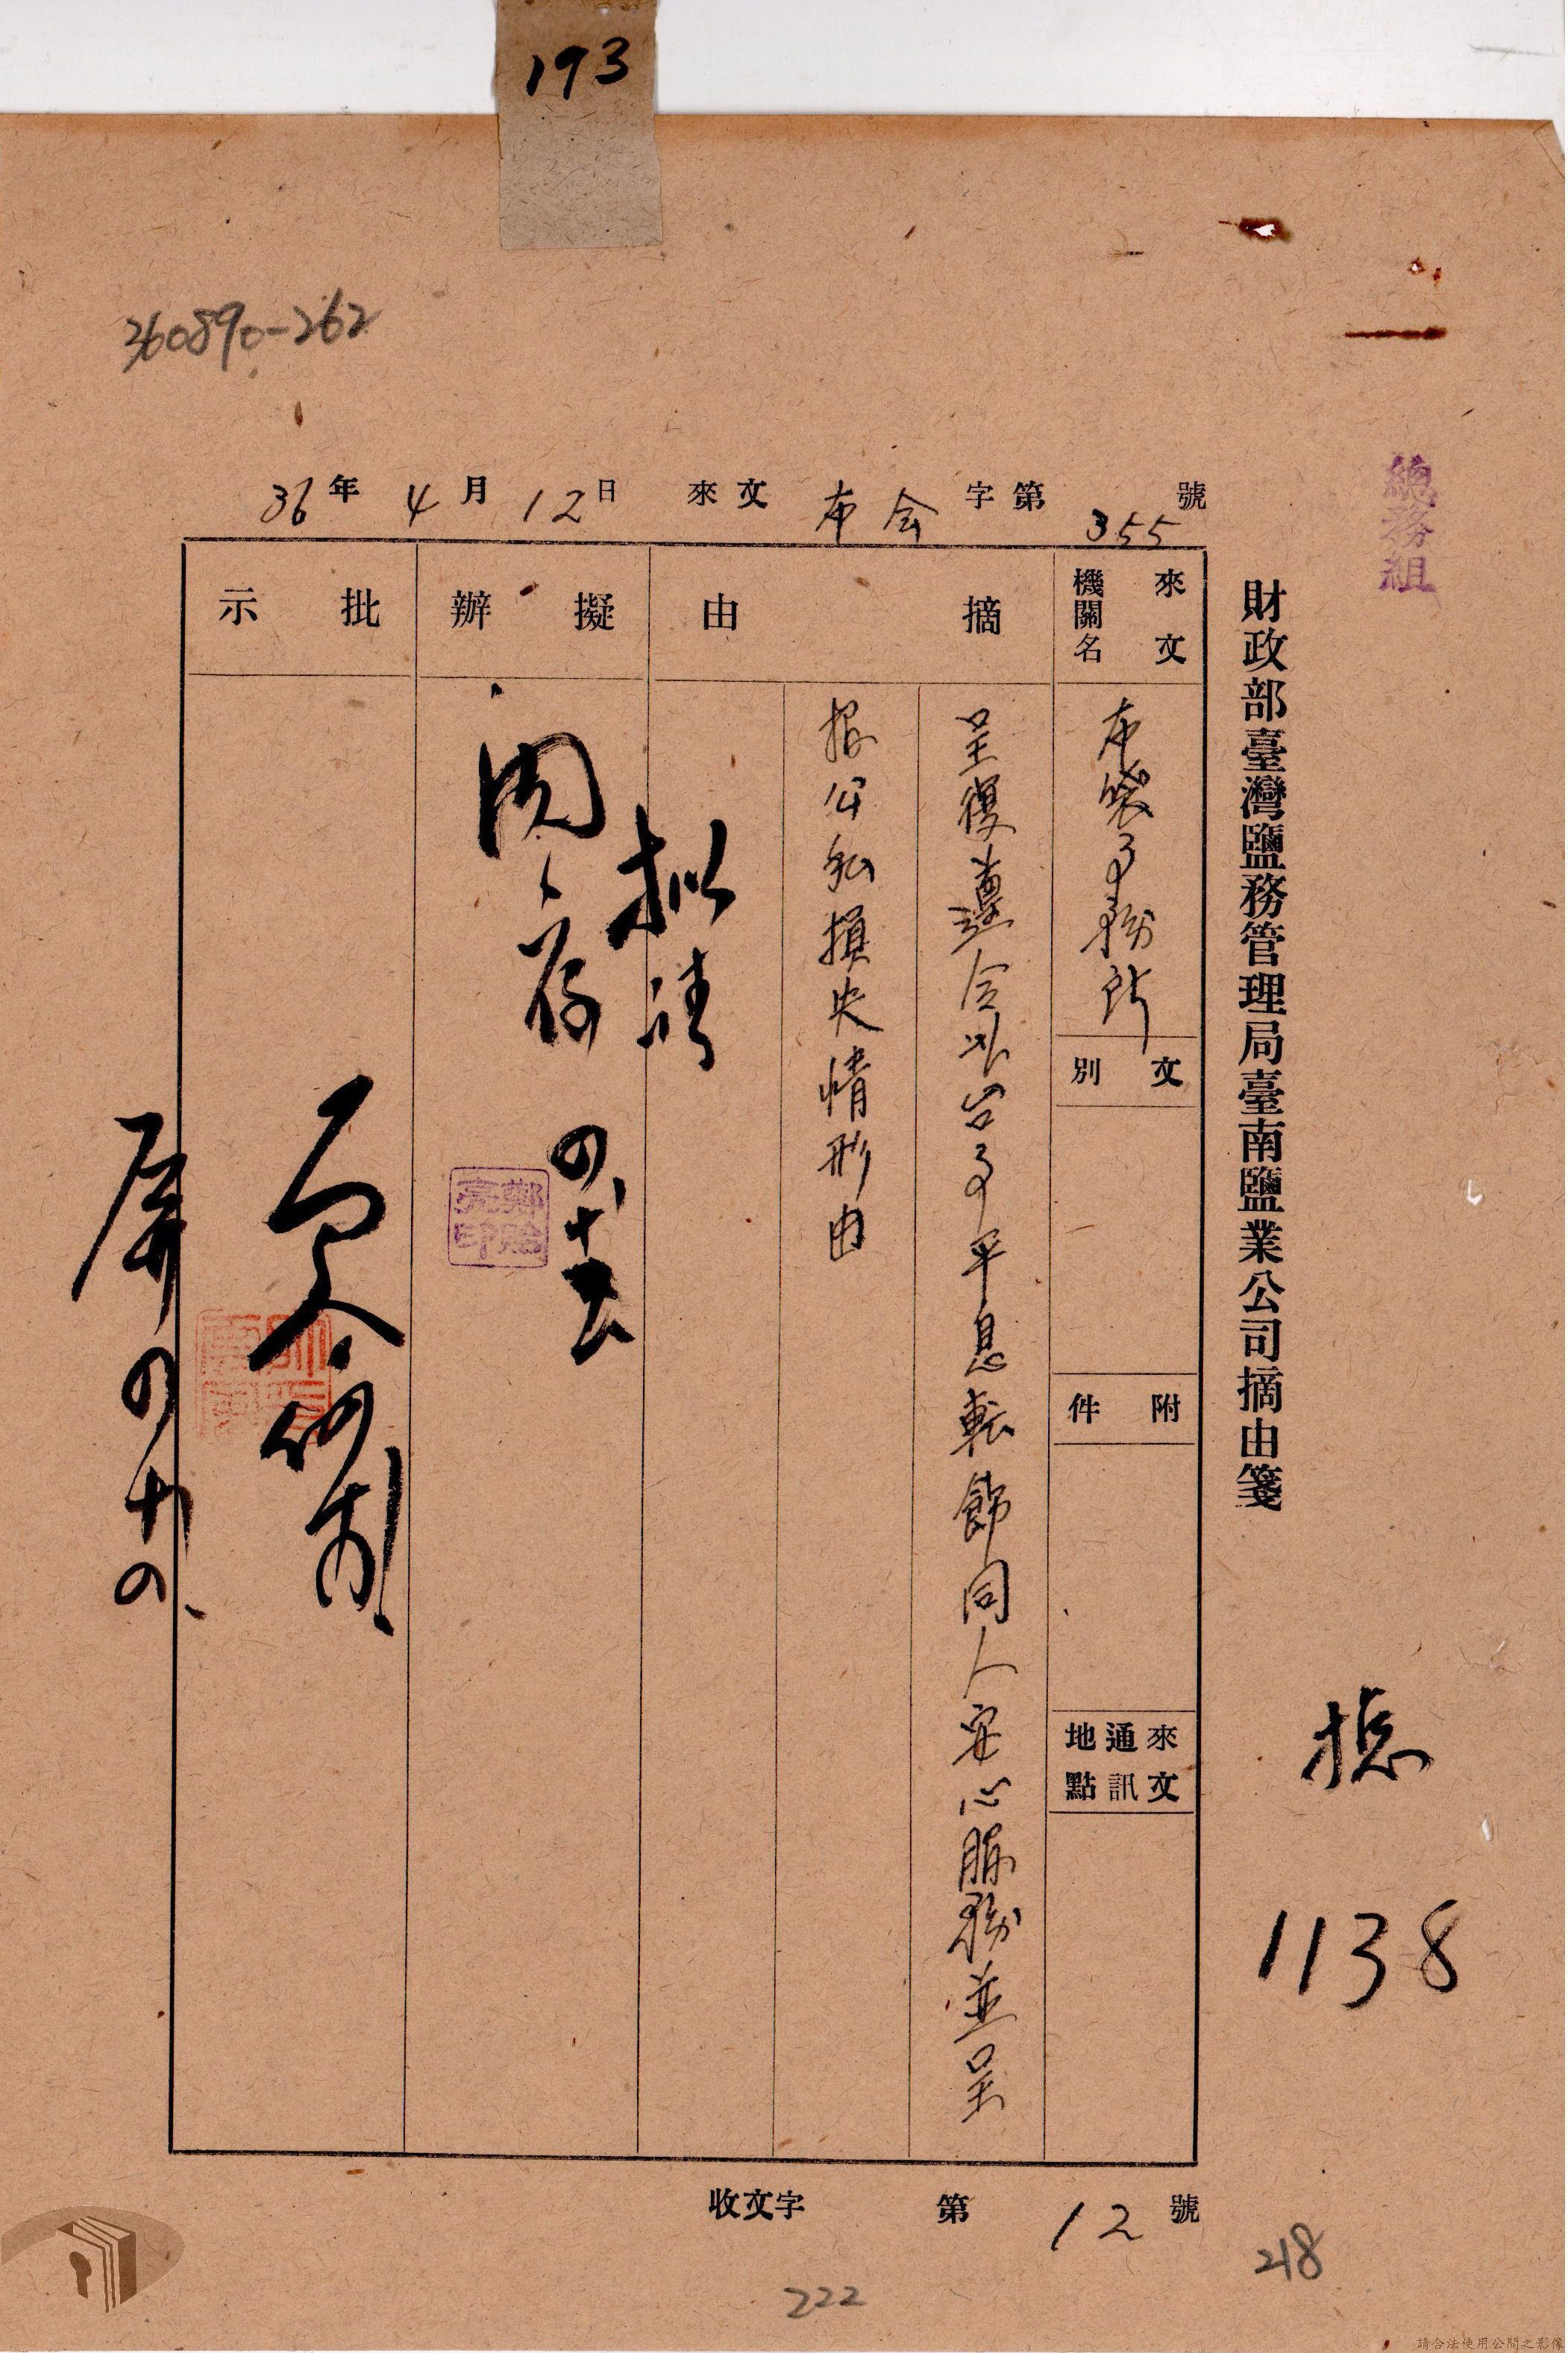 193
360890-262
總務組
36年4月12日 來文 布会 字第 355 號
財政部臺灣鹽務管理局臺南鹽業公司摘由箋
總
1138
來文機關名
布袋事務所
文別
附件
來文通訊地點
摘由
呈復遵令以台事平息転飭同人安心服務並呈
报公私損失情形由
擬辦
拟請
閱後存
鄭貽亮印
批示
屏
收文字 第 12 號
218
222
請合法使用公開之影像